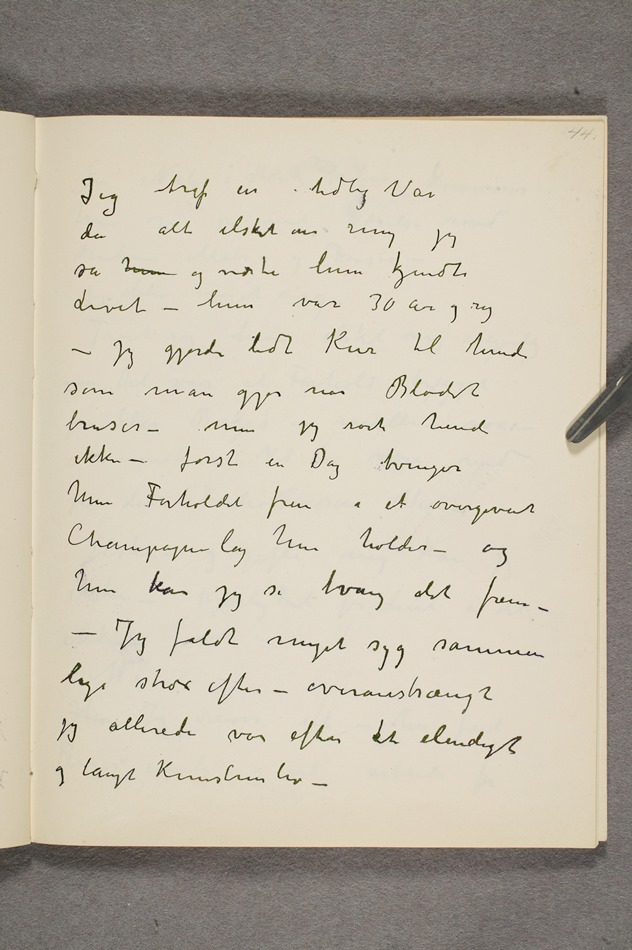 44.
Jeg traf en tidlig Vår
da alt elsket om mig jeg
så hun og vidste hun kjendte
livet – hun var 30 år og rig
– Jeg gjorde lidt Kur til hende
som man gjør når Blodet
bruser – men jeg rørte hende
ikke – først en Dag bringer
hun Forholdet frem i et overgivent
Champagnelag hun holder – og
hun kan jeg si tvang det frem –
– Jeg faldt meget syg sammen
lige strax efter – overanstrængt
jeg allerede var efter et elendigt
og langt Kunstnerliv –